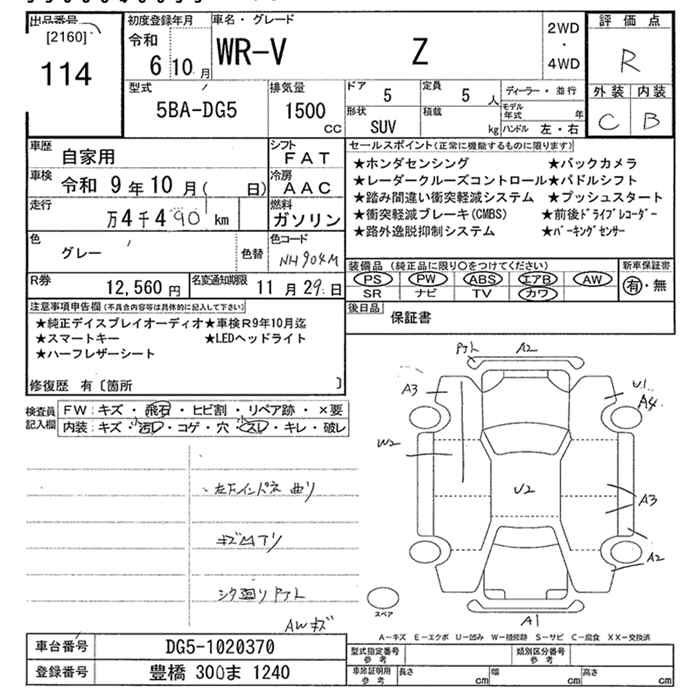 出品番号
[2160]
114
初度登録年月
令和
6 10 月
車名・グレード
WR-V Z
2WD
・
4WD
評価点
R
外装 内装
C B
型式
5BA-DG5
排気量
1500
CC
ドア
5
定員
5 人
形状
SUV
積載
kg
ディーラー・並行
モデル年式 年
ハンドル 左・右
車歴
自家用
シフト
FAT
車検
令和 9年10月( 日)
冷房
AAC
走行
万4千490 km
燃料
ガソリン
色
グレー
色替
色コード
NH904M
R券
12,560 円
名変通知期限
11 月 29 日
セールスポイント(正常に機能するものに限ります)
★ホンダセンシング ★バックカメラ
★レーダークルーズコントロール★パドルシフト
★踏み間違い衝突軽減システム ★プッシュスタート
★衝突軽減ブレーキ(CMBS) ★前後ドライブレコーダー
★路外逸脱抑制システム ★パーキングセンサー
装備品(純正品に限り○をつけてください)
PS PW ABS エアB AW
SR ナビ TV カワ
新車保証書
有・無
後日品
保証書
注意事項申告欄(不具合内容等は具体的に記入して下さい)
★純正デイスプレイオーディオ★車検R9年10月迄
★スマートキー ★LEDヘッドライト
★ハーフレザーシート
修復歴 有〔箇所 〕
検査員記入欄
FW:キズ・飛石・ヒビ割・リペア跡・×要
内装:キズ・小汚レ・コゲ・穴・小スレ・キレ・破レ
左下インパネ曲リ
キズ凹アリ
シタ廻リサビ
AWキズ
A2
A3
U1
A4
W2
U2
A3
A2
A1
スペア
A－キズ E－エクボ U－凹み W－補修跡 S－サビ C－腐食 XX－交換済
車台番号
DG5-1020370
登録番号
豊橋 300ま 1240
型式指定番号
参考
類別区分番号
参考
車庫証明用
参考
長さ cm
幅 cm
高さ cm